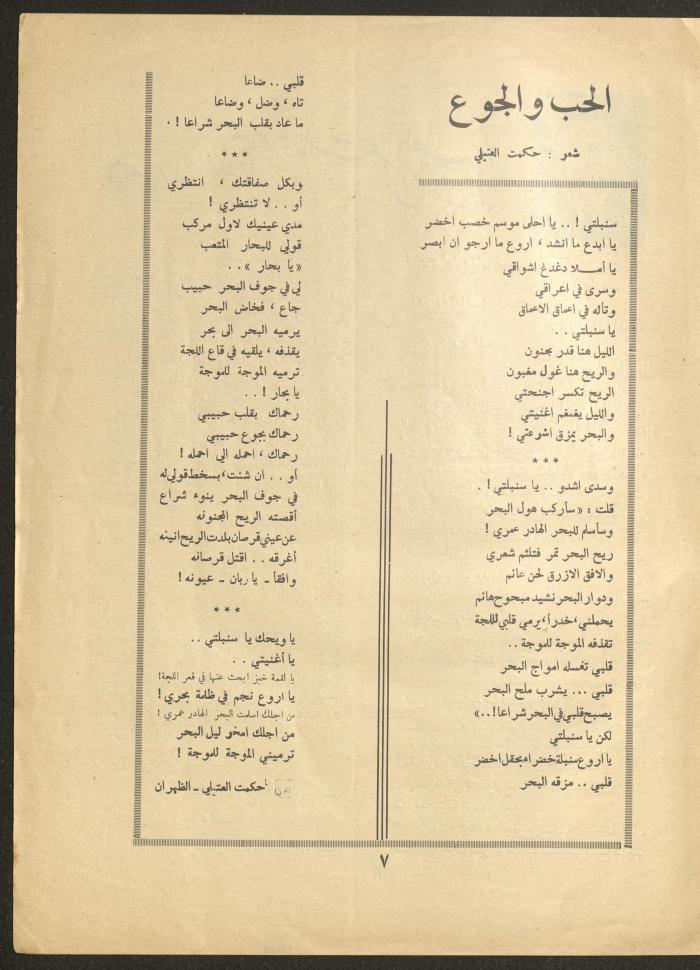 الحب والجوع
شعر : حكمت العتيلي
سنبلتي ! .. يا احلى موسم خصب اخضر
يا ابدع ما انشد ، اروع ما ارجو ان ابصر
يا أمـــلا دغدغ اشواقي
وسرى في اعراقي
وتأله في اعماق الاعماق
يا سنبلتي . .
الليل هنا قدر مجنون
والريح هنا غول مغبون
الريح تكسر اجنحتي
والليل يغمغم اغنيتي
والبحر يمزق اشرعتي !
* * *
وسدى اشدو .. يا سنبلتي ! .
قلت : « سأركب هول البحر
وسأسلم للبحر الهادر عمري !
ريح البحر تمر فتلثم شعري
والافق الازرق لحن عائم
ودوار البحر نشيد مبحوح هائم
يحملني ، خدراً ، يرمي قلبي للجة
تقذفه الموجة للموجة ..
قلبي تغسله امواج البحر
قلبي ... يشرب ملح البحر
يصبح قلبي في البحر شراعا ! .. »
لكن يا سنبلتي
يا اروع سنبلة خضراء بحقل اخضر
قلبي .. مزقه البحر
قلبي .. ضاعا
تاه ، وضل ، وضاعا
ما عاد بقلب البحر شراعا ! .
* * *
وبكل صفاقتك ، انتظري
أو . . لا تنتظري !
مدي عينيك لاول مركب
قولي للبحار المتعب
« يا بحار » . .
لي في جوف البحر حبيب
جاع ، فخاض البحر
يرميه البحر الى بحر
يقذفه ، يلقيه في قاع اللجة
ترميه الموجة للموجة
يا بحار ! . .
رحماك بقلب حبيبي
رحماك بجوع حبيبي
رحماك ، احمله الي احمله !
أو . . ان شئت ، بسخط قولي له
في جوف البحر ينوء شراع
أقصته الريح المجنونه
عن عيني قرصان بلدت الريح انينه
أغرقه . . اقتل قرصانه
وافقأ ـ يا ربان ـ عيونه !
* * *
يا ويحك يا سنبلتي ..
يا أغنيتي . .
يا لقمة خبز ابحث عنها في قعر اللجة !
يا اروع نجم في ظلمة بحري !
من اجلك اسلمت البحر الهادر عمري !
من اجلك امخر ليل البحر
ترميني الموجة للموجة !
حكمت العتيلي ـ الظهران
٧